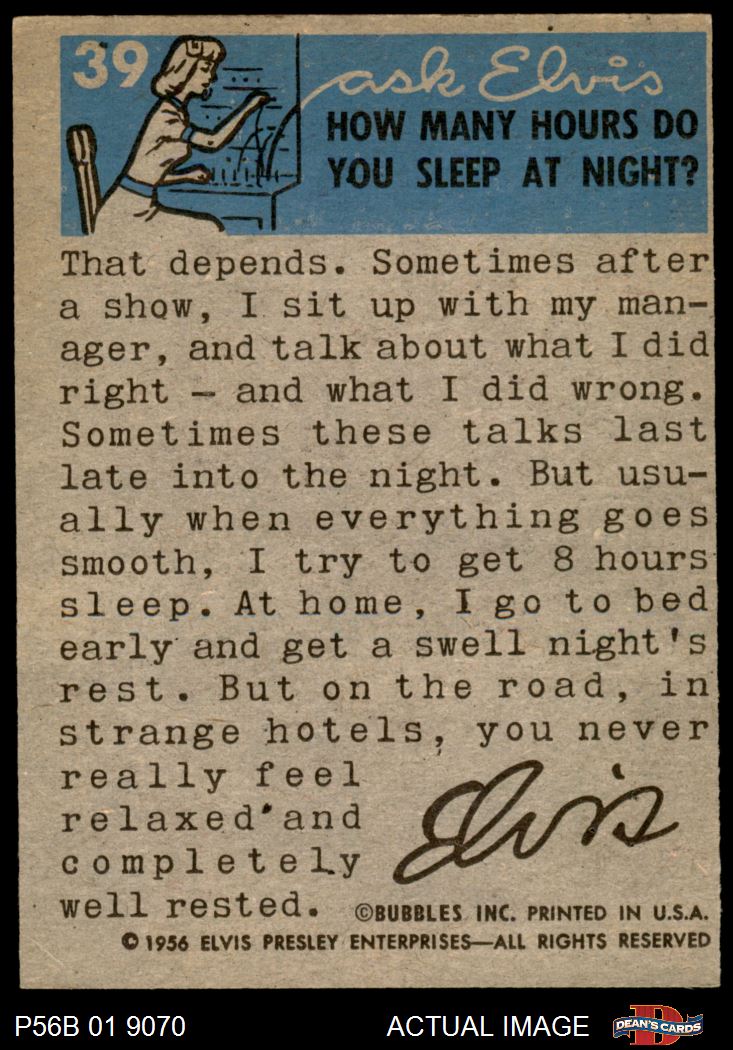 39
ask Elvis
HOW MANY HOURS DO
YOU SLEEP AT NIGHT?
That depends. Sometimes after
a show, I sit up with my man-
ager, and talk about what I did
right — and what I did wrong.
Sometimes these talks last
late into the night. But usu-
ally when everything goes
smooth, I try to get 8 hours
sleep. At home, I go to bed
early and get a swell night's
rest. But on the road, in
strange hotels, you never
really feel
relaxed and
completely
well rested.
Elvis
©BUBBLES INC. PRINTED IN U.S.A.
© 1956 ELVIS PRESLEY ENTERPRISES—ALL RIGHTS RESERVED
P56B 01 9070
ACTUAL IMAGE
D
DEAN'S CARDS